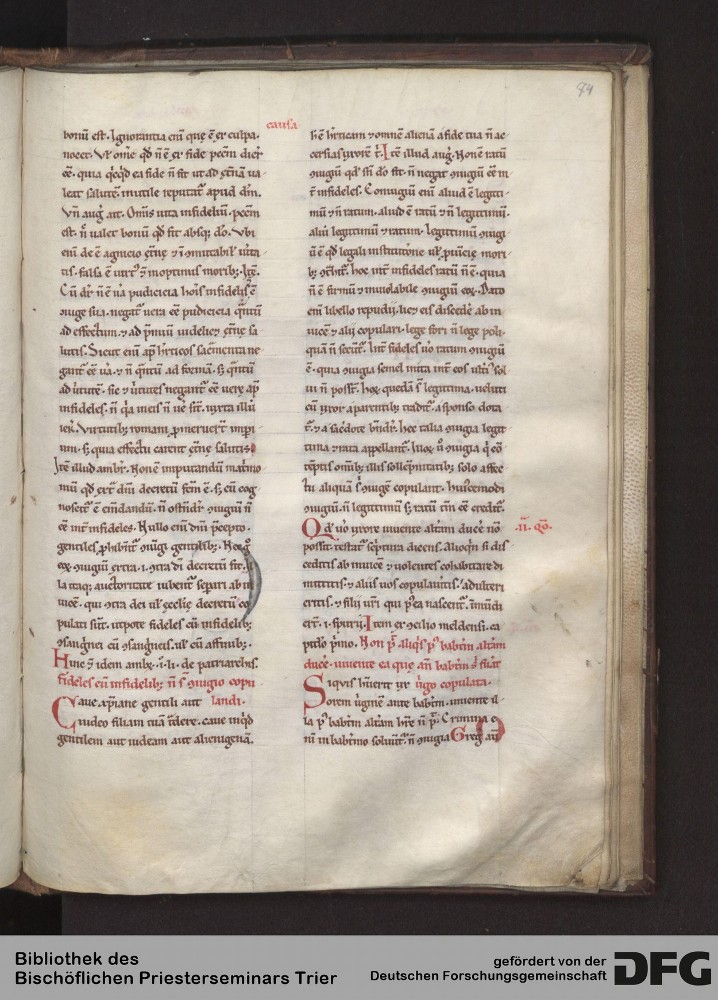 causa
84
bonū est. Ignorantia enī que ē ex culpa.
nocet. Ul' om̄e qd̄ n̄ ē ex fide peccm̄ dicit᷑
ēē. quia q̄cqd̄ ex fide n̄ fit ut ad et̄nā ua
leat salutē. inutile reputat᷑ apud dm̄.
Vn̄ auḡ ait. Om̄is uita infideliū. peccm̄
est. n̄ ualet bonū qd̄ fit absq; d̄o. Vbi
enī de ē agnicio et̄nę ⁊ īmutabil' uita
tis. falsa ē uirt᷒ ī optimis morib;. Itē.
Cū dr̄ n̄ ē ua pudicicia hōis infidelis c̄
iuge sua. negat᷑ uera ēē pudicicia q̄ntū
ad effectum. ⁊ ad p̄miū uidelic; et̄nę sa
lutis. Sicut enī ap̄ hr̄ticos sac̄menta ne
gant᷑ ēē ua. ⁊ n̄ q̄ntū ad formā. s; q̄ntū
ad uirtutē. sic ⁊ uirtutes negant᷑ ēē uere ap̄
infideles.
tum. s; quia effectu carent et̄nę salutis
Itē illud ambr̄. Non ē imputandū mat̄mo
niū qd̄ ext᷑ dm̄ decretū fcm̄ ē. s; cū cog
noscit᷑ ē em̄dandū. n̄ ostndit᷑ ↄiugiū n̄
ēē int̄ infideles. Nullo enī dn̄i p̄cepto.
gentiles ꝓhibent᷑ iūgi gentilib;. Non ḡ
eoꝝ ↄiugiū extra. i. ↄtra d̄i decretū fit. Il
la itaq; auctoritate iubent᷑ separi ab in
uicē. qui ↄtra dei ul' ecclię decretū co
pulati sūt. utpote fideles cū infidelib;
ↄsangꝰnei cū ↄsangꝰneis. ul' cū affinib;.
Huic ꝯ̄ idem ambr̄. ī. li. de patriarchis.
fideles cū infidelib; n̄ s̄t ↄiugio copu
landi.
Caue xp̄iane gentili aut
iudeo filiam tuā t̄dere. caue inq̄d
gentilem aut iudeam aut alienigenā.
h̄ ē hr̄ticam ⁊ omnē alienā a fide tua n̄ ac
cersias uxorē t̄. Itē illud auḡ. Non ē ratū
ↄiugiū qd̄ sn̄ d̄o fit. n̄ negat ↄiugiū ēē in
t̄ infideles. Coniugiū enī aliud ē legiti
mū ⁊ n̄ ratum. aliud ē ratū ⁊ n̄ legitimū.
aliū legitimū ⁊ ratum. legitimū ↄiugi
ū ē qd̄ legali institutione ul' ꝓuincię mori
b; ↄt̄hit᷑. hoc int̄ infideles ratū n̄ ē. quia
n̄ ē firmū ⁊ inuiolabile ↄiugiū eoꝝ. Dato
enī libello repudii. lic; eis discedē ab in
uicē ⁊ alii copulari. lege fori n̄ lege poli
quā n̄ secūt᷑. Int̄ fideles uo ratum ↄiugiū
ē. quia ↄiugia semel inita int̄ eos ult̄i sol
ui n̄ possn̄t. hoꝝ quedā s̄t legitima. ueluti
cū uxor a parentib; tradit᷑. a sponso dota
t᷑. ⁊ a sacdote bn̄dr̄. hec talia ↄiugia legit
tima ⁊ rata appellant᷑. Illoꝝ u̇ ↄiugia q̄ cō
tēptis omib; illis sollēpnitatib; solo affec
tu aliquā s̄ ↄiugē copulant. huꝰcemodi
ↄiugiū. n̄ legitimū s; ratū tm̄ ēē credit᷑.
.II. Qō.
Qd' uo uxore uiuente altam ducē nō
possit. testat᷑ sc̄ptura dicens. Alioqn̄ si dis
ceditis ab inuicē ⁊ uolentes cohabitare di
mittitis. ⁊ aliis uos copulauitis. adulteri
eritis. ⁊ filii ur̄i qui p̕ea nascent᷑. īmūdi
er̄t. i. spurii. Item ex ↄcilio meldensi. ca
pitło p̄mo. Non p̄t aliqꝰs p᷒ babtm̄ altam
ducē. uiuente ea que an̄ babtm̄ s; fuit
Siquis huerit ux uirgo copulata.
orem uirginē ante babtm̄. uiuente il
la p᷒ babtm̄ altam hr̄e n̄ p̄t. Crimina e
nī in babtmo soluūt᷑. n̄ ↄiugia Greg̕ aū
Bibliothek des
Bischöflichen Priesterseminars Trier
gefördert von der
Deutschen Forschungsgemeinschaft
DFG